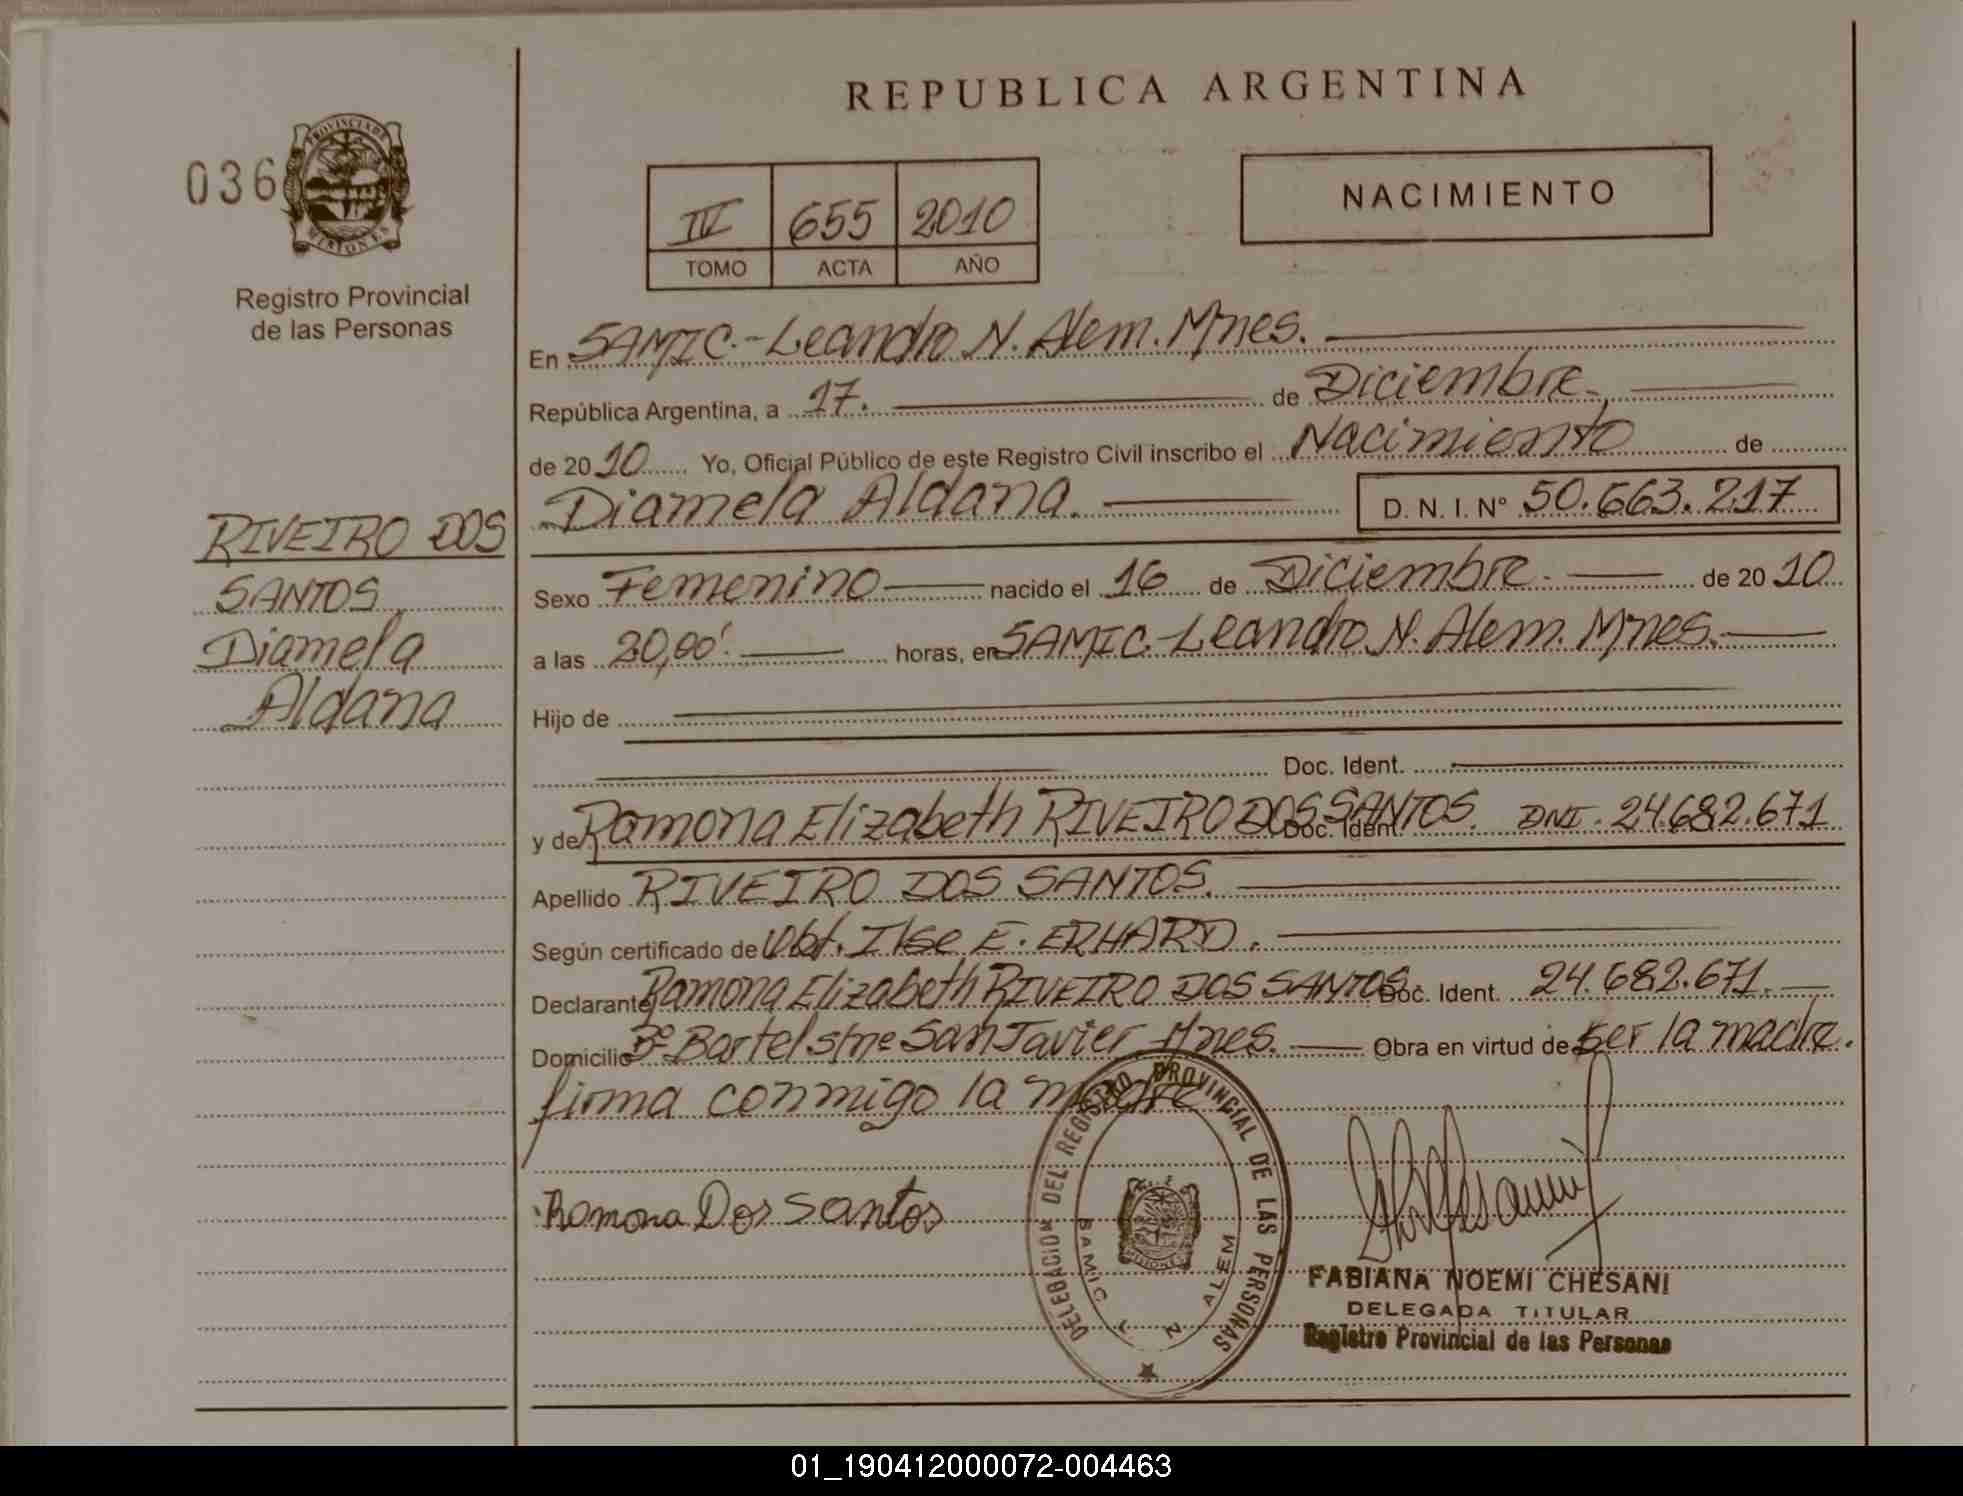 REPUBLICA ARGENTINA
036
PROVINCIA DE
MISIONES
Registro Provincial
de las Personas
IV 655 2010
TOMO ACTA AÑO
NACIMIENTO
En SAMIC.-Leandro N. Alem. Mnes.
República Argentina, a 17. de Diciembre.
de 2010 Yo, Oficial Público de este Registro Civil inscribo el Nacimiento de
Diamela Aldana. D. N. I. Nº 50.663.217
RIVEIRO DOS
SANTOS
Diamela
Aldana
Sexo Femenino nacido el 16 de Diciembre. de 2010
a las 20,00' horas, en SAMIC.-Leandro N. Alem. Mnes.
Hijo de
Doc. Ident.
y de Ramona Elizabeth RIVEIRO DOS SANTOS. Doc. Ident. DNI. 24.682.671
Apellido RIVEIRO DOS SANTOS.
Según certificado de Obt. Ilse E. ERHARD.
Declarante Ramona Elizabeth RIVEIRO DOS SANTOS Doc. Ident. 24.682.671.
Domicilio Bº Bartel s/nº San Javier Mnes. Obra en virtud de ser la madre.
firma conmigo la madre
Ramona Dos Santos
DELEGACION DEL REGISTRO PROVINCIAL DE LAS PERSONAS
SAMIC L N ALEM
MISIONES
FABIANA NOEMI CHESANI
DELEGADA TITULAR
Registro Provincial de las Personas
01_190412000072-004463